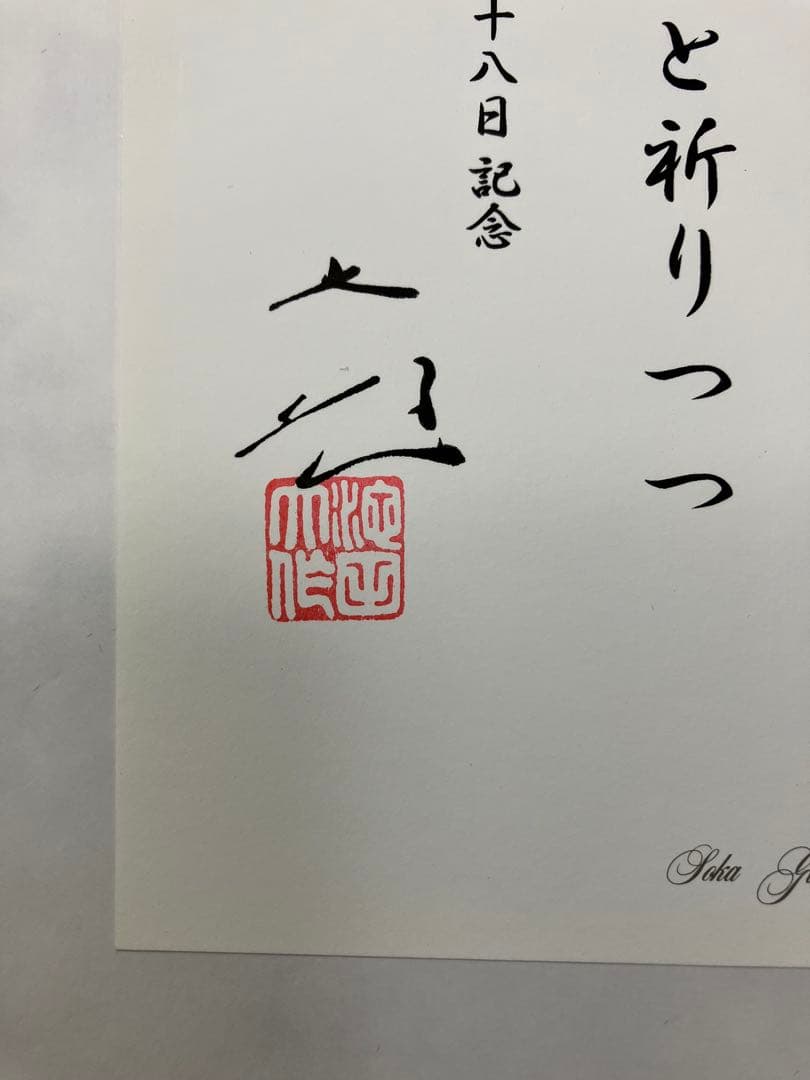 と祈りつつ
十八日記念
池田
大作
Soka